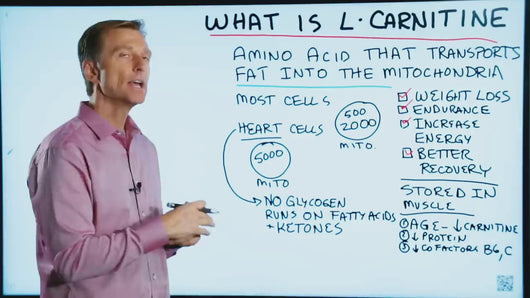 WHAT IS L-CARNITINE
AMINO ACID THAT TRANSPORTS
FAT INTO THE MITOCHONDRIA
MOST CELLS
500
2000
MITO.
HEART CELLS
5000
MITO
NO GLYCOGEN
RUNS ON FATTY ACIDS
+ KETONES
WEIGHT LOSS
ENDURANCE
INCREASE
ENERGY
BETTER
RECOVERY
STORED IN
MUSCLE
① AGE - ↓ CARNITINE
② ↓ PROTEIN
③ ↓ COFACTORS B6, C